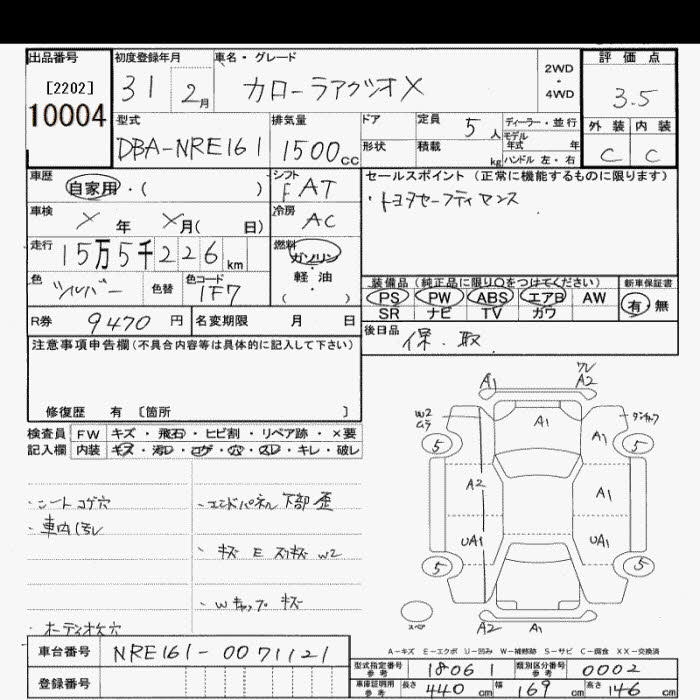 出品番号
[2202]
10004
初度登録年月
31 2月
車名・グレード
カローラアクシオX
2WD
・
4WD
評価点
3.5
外装 内装
C C
型式
DBA-NRE161
排気量
1500cc
ドア
形状
定員 5人
積載 kg
ディーラー・並行
モデル
年式 年
ハンドル 左・右
車歴
自家用・( )
シフト
FAT
セールスポイント(正常に機能するものに限ります)
・トヨタセーフティセンス
車検
× 年 ×月( 日)
冷房
AC
走行
15万5千226km
燃料
ガソリン
軽・油
( )
色
シルバー
色替
色コード
1F7
装備品(純正品に限り○をつけてください)
PS PW ABS エアB AW
SR ナビ TV カワ
新車保証書
有・無
R券 9470円
名変期限 月 日
後日品
保.取
注意事項申告欄(不具合内容等は具体的に記入して下さい)
修復歴 有 〔箇所 〕
検査員 FW キズ・飛石・ヒビ割・リペア跡・×要
記入欄 内装 キズ・汚レ・コゲ・穴・スレ・キレ・破レ
・シートコゲ穴
・車内汚レ
・オーディオ欠穴
・エンドパネル下部歪
・キズ E スリキズ W2
・Wキャップ キズ
A1 A2
W2
A1
A1
5 5
A2
A1
UA1
UA1
5 5
スペア
A2 A1
A-キズ E-エクボ U-凹み W-補修跡 S-サビ C-腐食 XX-交換済
車台番号 NRE161-0071121
登録番号
型式指定番号
参考
18061
類別区分番号
参考
0002
車庫証明用
参考
長さ 440cm 幅 169cm 高さ 146cm